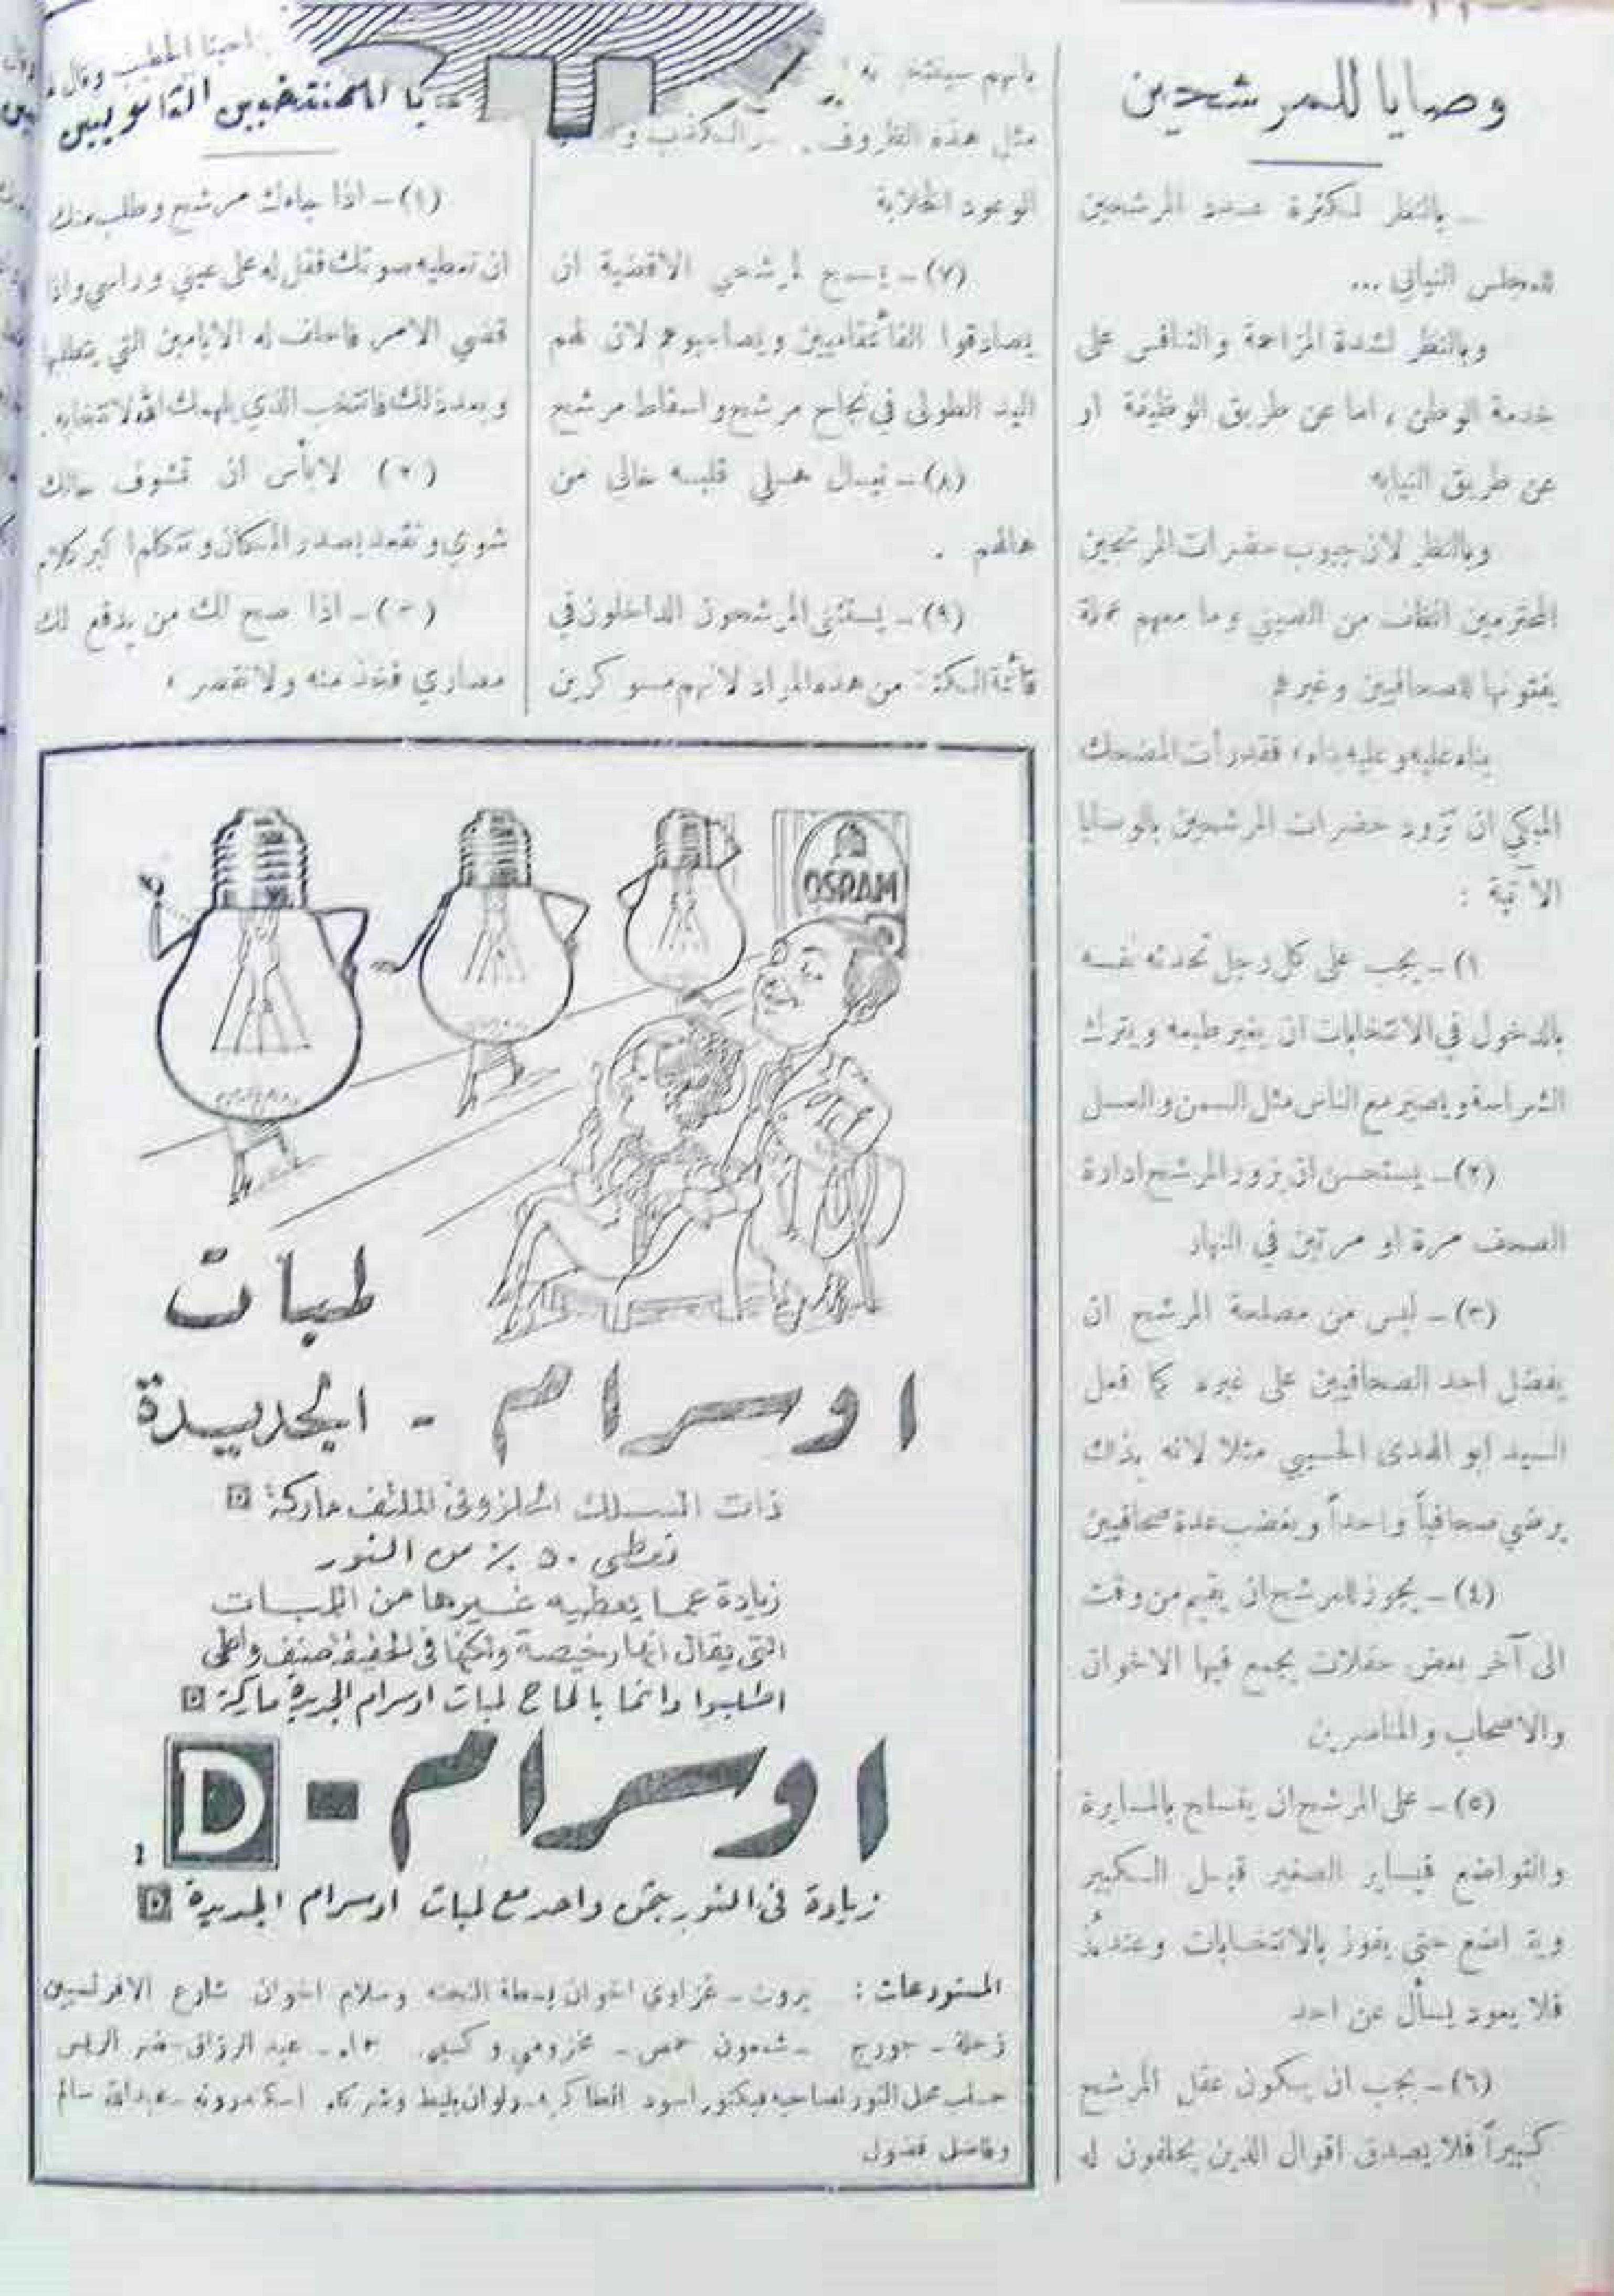 وصايا للمرشحين
ـ بالنظر لكثرة عدد المرشحين
للمجلس النيابي ...
وبالنظر لشدة المزاحمة والتنافس على
خدمة الوطن ، اما عن طريق الوظيفة او
عن طريق النيابه
وبالنظر لان جيوب حضرات المرشحين
المحترمين انظف من الصيني وما معهم عملة
يفتونها للصحافيين وغيرهم
بناء عليه وعليه بناء ؛ فقد رأت المضحك
المبكي ان تزود حضرات المرشحين بالوصايا
الآتية :
١) ـ يجب على كل رجل تحدثه نفسه
بالدخول في الانتخابات ان يغير طبعه ويترك
الشراسة ويصير مع الناس مثل السمن والعسل
(٢) ـ يستحسن ان يزور المرشح ادارة
الصحف مرة او مرتين في النهار
(٣) ـ ليس من مصلحة المرشح ان
يفضل احد الصحافيين على غيره كما فعل
السيد ابو الهدى الحسيبي مثلا لانه بذلك
يرضي صحافياً واحداً ويغضب عدة صحافيين
(٤) ـ يجوز للمرشح ان يقيم من وقت
الى آخر بعض حفلات يجمع فيها الاخوان
والاصحاب والمناصرين
(٥) ـ على المرشح ان يتسلح بالمسايرة
والتواضع فيساير الصغير قبل الكبير
ويتواضع حتى يفوز بالانتخابات وعندئذ
فلا يعود يسأل عن احد
(٦) ـ يجب ان يكون عقل المرشح
كبيراً فلا يصدق اقوال الذين يحلفون له
بانهم
مثل هذه الظروف
الوعود الخلابة
(٧) ـ لمرشحي الاقضية ان
يصادقوا القائمقاميين ويصاحبوهم لان لهم
اليد الطولى في نجاح مرشح واسقاط مرشح
(٨) ـ نيال هلي قلبه خالي من
همالهم .
(٩) ـ يستثنى المرشحون الداخلون في
قائمة الكتلة من هذه المواد لانهم مسوكرين
للمنتخبين الثانويين
(١) ـ اذا جاءك مرشح وطلب منك
ان تعطيه صوتك فقل له على عيني وراسي واذا
قضي الامر فاحلف له الايامين التي يتطلبها
وبعد ذلك فانتخب الذي يلهمك الله لانتخابه .
(٢) لابأس ان تشوف حالك
شوي وتقعد بصدر المكان وتتكلم اكبر كلام
(٣) ـ اذا صح لك من يدفع لك
مصاري فخذ منه ولا تقصر ؛
OSRAM
لمبات
اوسرام - الجديدة
ذات السلك الحلزوني الملتف ماركة D
تعطى ٥٠ ٪ من النور
زيادة عما يعطيه غيرها من اللمبات
التي يقال انها رخيصة ولكنها في الحقيقة صنف واطي
اطلبوا دائما بالحاح لمبات اوسرام الجديدة ماركة D
اوسرام - D
زيادة في النور مع لمبات اوسرام الجديدة D
المستودعات : بيروت ـ غزاوي اخوان وسلام اخوان شارع الافرنسيين
زحلة ـ جورج ـ شمعون حمص ـ مخزومي و حماه ـ عبد الرزاق الريس
حلب محل النور لصاحبه فيكتور اسود وشركاه ـ عبدالله سالم
وفاضل فضول